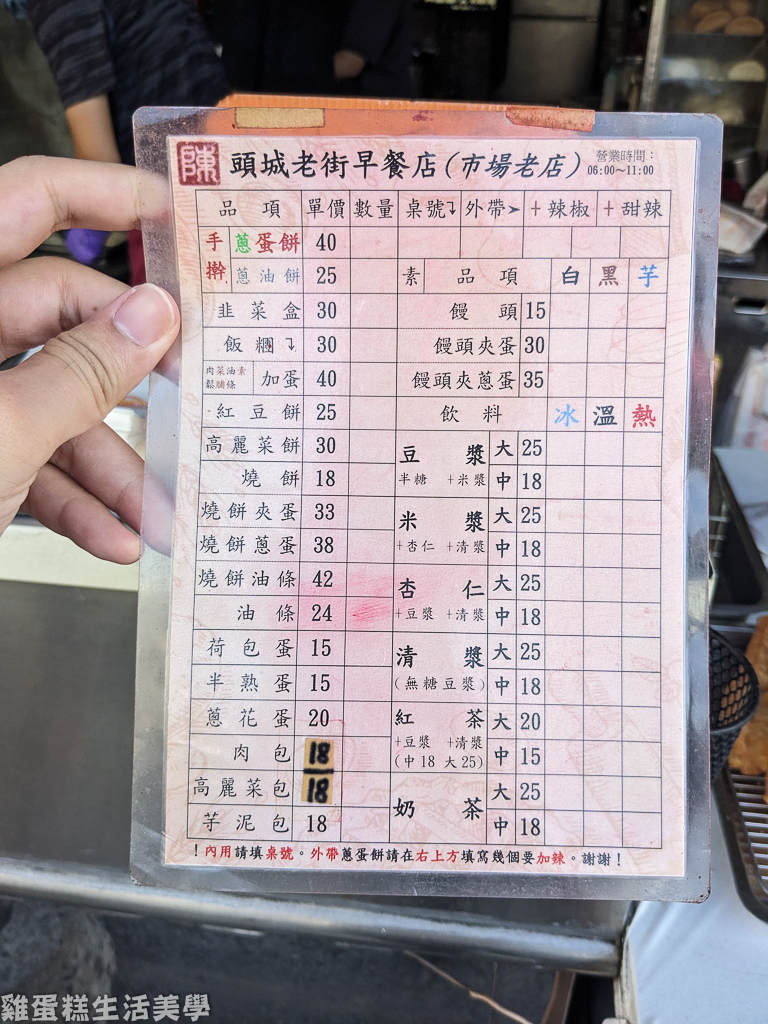 陳 頭城老街早餐店(市場老店) 營業時間：
06:00～11:00
品項 單價 數量 桌號 外帶➤ +辣椒 +甜辣
手擀 蔥蛋餅 40
蔥油餅 25
素 品項 白 黑 芋
韭菜盒 30
饅頭 15
飯糰 30
饅頭夾蛋 30
肉鬆 菜脯 油條 素 加蛋 40
饅頭夾蔥蛋 35
紅豆餅 25
飲料 冰 溫 熱
高麗菜餅 30
豆漿 大 25
半糖 +米漿 中 18
燒餅 18
燒餅夾蛋 33
米漿 大 25
+杏仁 +清漿 中 18
燒餅蔥蛋 38
燒餅油條 42
杏仁 大 25
+豆漿 +清漿 中 18
油條 24
荷包蛋 15
清漿 大 25
(無糖豆漿) 中 18
半熟蛋 15
蔥花蛋 20
紅茶 大 20
+豆漿 +清漿
(中18 大25) 中 15
肉包 18
高麗菜包 18
奶茶 大 25
中 18
芋泥包 18
！內用請填桌號。外帶蔥蛋餅請在右上方填寫幾個要加辣。謝謝！
雞蛋糕生活美學